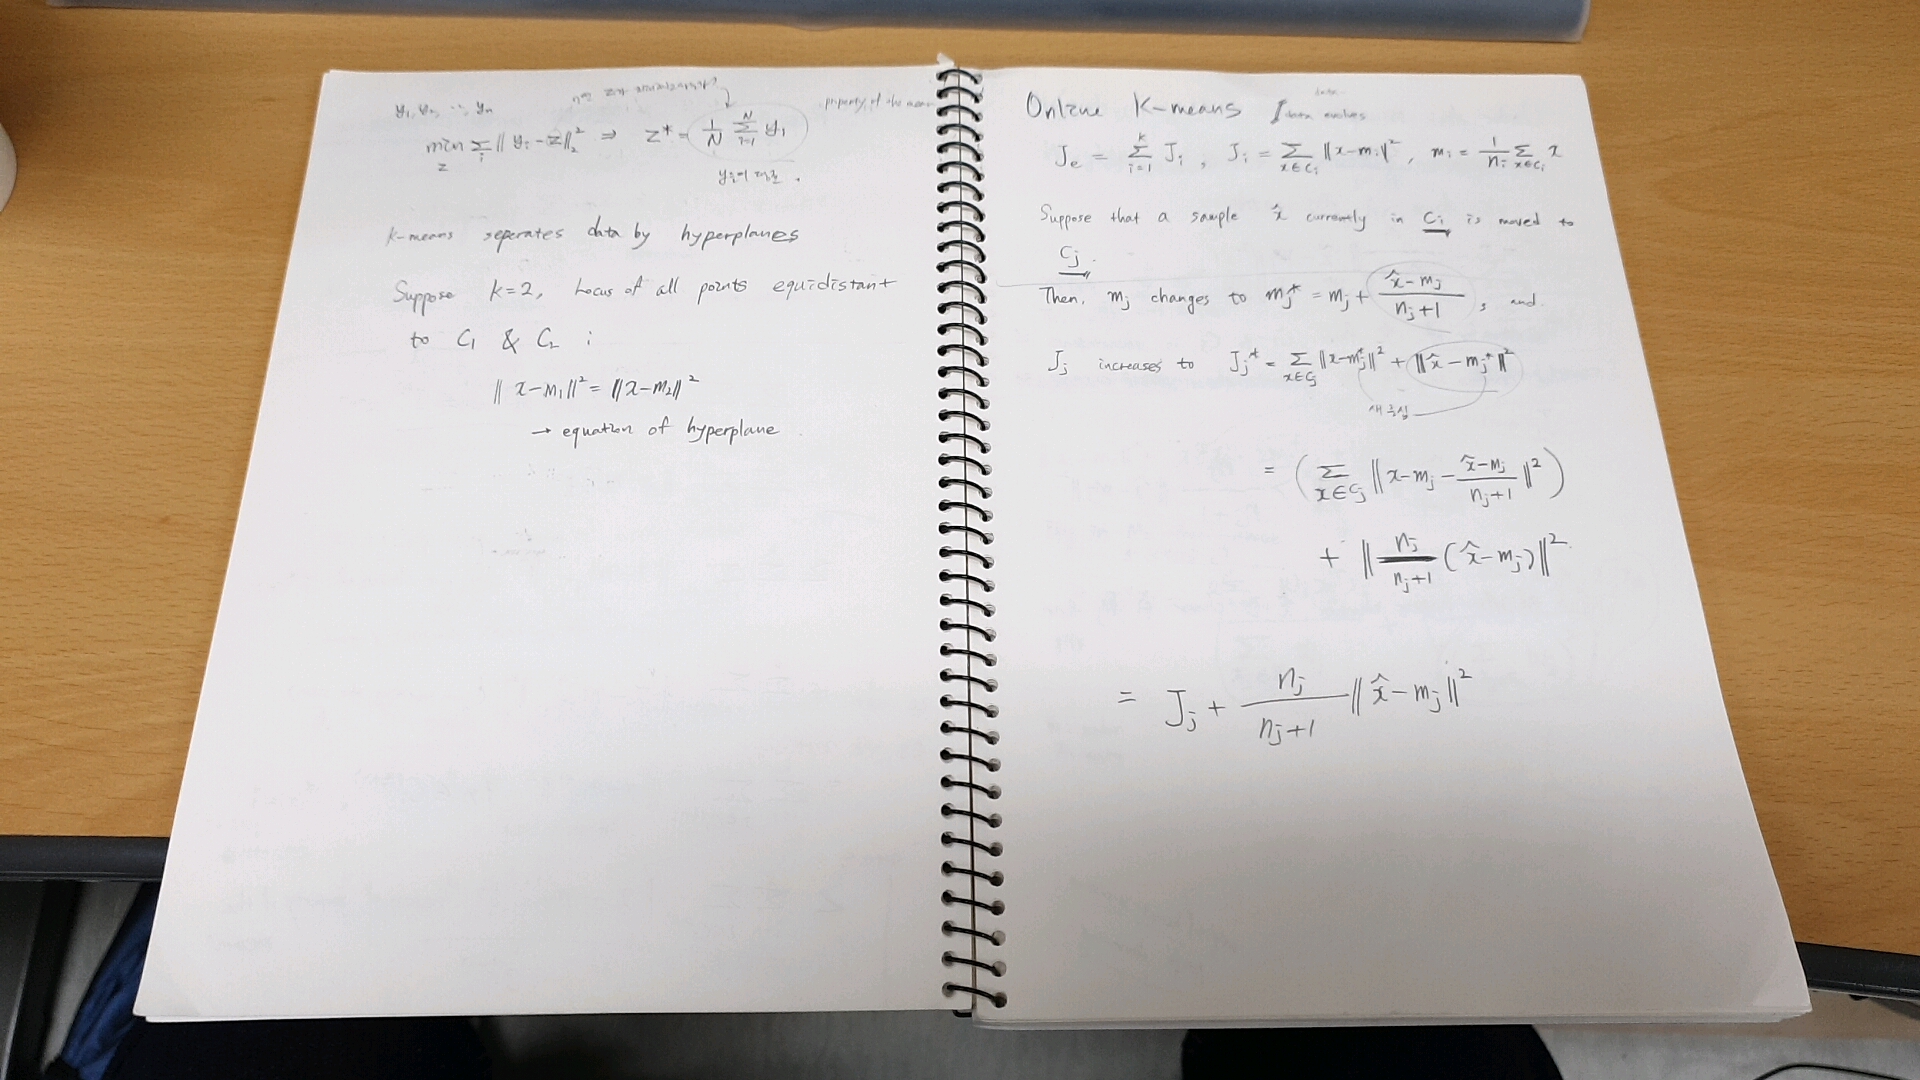 y₁, y₂, ..., yₙ
min_z Σ_i ‖yᵢ - z‖₂² ⇒ z* = 1/N Σ_{i=1}^{N} yᵢ
property of the mean
k-means seperates data by hyperplanes
Suppose k=2, Locus of all points equidistant
to C₁ & C₂ ;
‖x-m₁‖² = ‖x-m₂‖²
→ equation of hyperplane.
Online K-means
data evolves
Jₑ = Σ_{i=1}^{k} Jᵢ , Jᵢ = Σ_{x∈Cᵢ} ‖x-mᵢ‖² , mᵢ = 1/nᵢ Σ_{x∈Cᵢ} x
Suppose that a sample x̂ currently in Cᵢ is moved to
Cⱼ.
Then, mⱼ changes to mⱼ* = mⱼ + (x̂-mⱼ)/(nⱼ+1) , and
Jⱼ increases to Jⱼ* = Σ_{x∈Cⱼ} ‖x-mⱼ*‖² + ‖x̂-mⱼ*‖²
새 중심
= ( Σ_{x∈Cⱼ} ‖x-mⱼ - (x̂-mⱼ)/(nⱼ+1)‖² )
+ ‖ nⱼ/(nⱼ+1) (x̂-mⱼ)‖²
= Jⱼ + nⱼ/(nⱼ+1) ‖x̂-mⱼ‖²